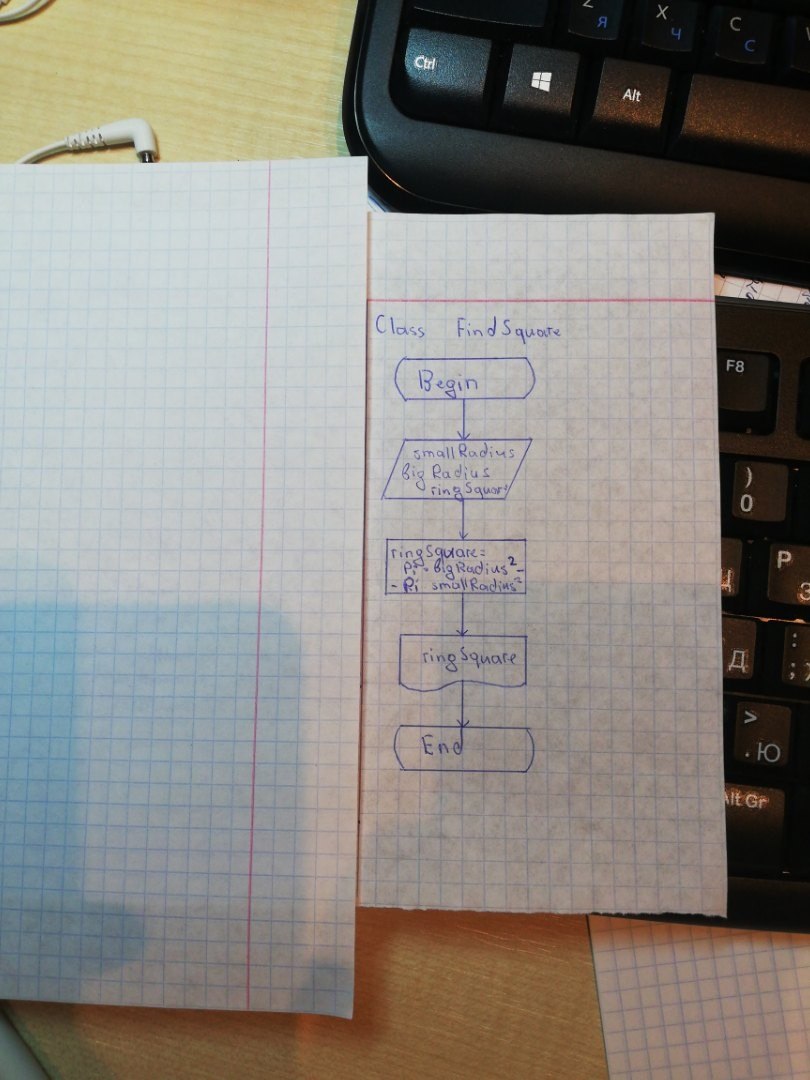 Z Я
X Ч
C С
Ctrl
Alt
Class FindSquare
Begin
F8
smallRadius
bigRadius
ringSquare
)
0
ringSquare=
Pi · bigRadius² -
- Pi smallRadius²
P
З
ringSquare
Д
:
;
End
>
. Ю
Alt Gr